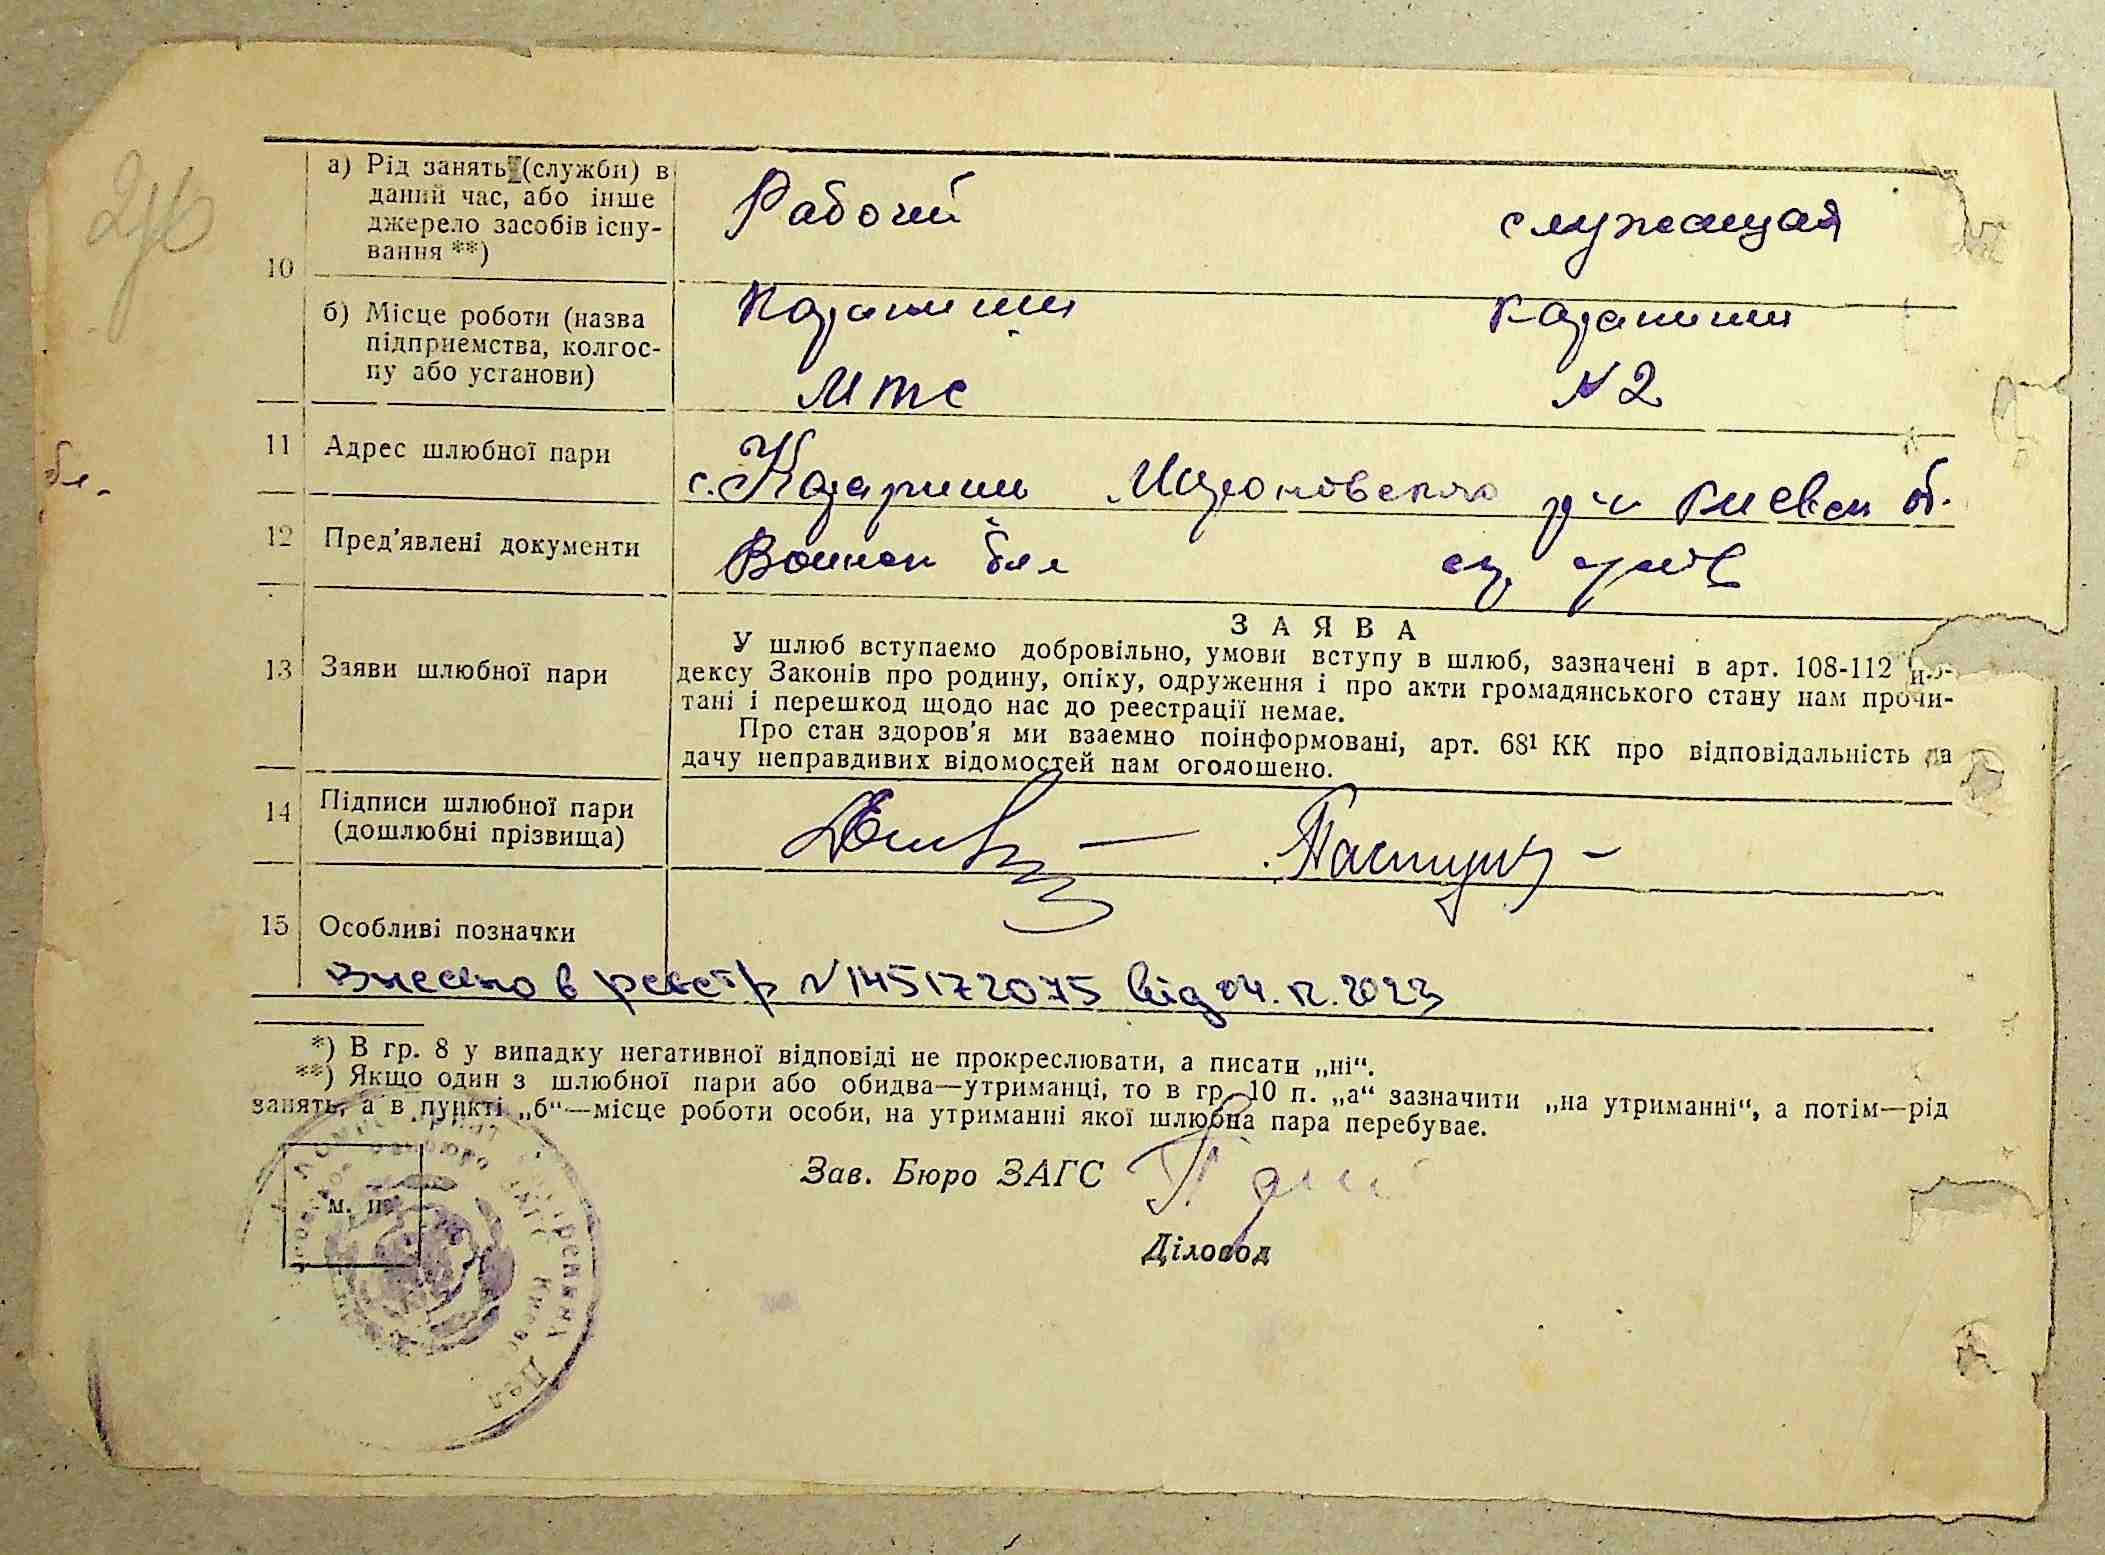 10
а) Рід занять (служби) в
даний час, або інше
джерело засобів існу-
вання **)
Рабочий
служащая
б) Місце роботи (назва
підприємства, колгос-
пу або установи)
МТС
N 2
11
Адрес шлюбної пари
с. Козарини Мироновского р-н Киевск об.
12
Пред'явлені документи
Воинск бил
13
Заяви шлюбної пари
ЗАЯВА
У шлюб вступаємо добровільно, умови вступу в шлюб, зазначені в арт. 108-112
дексу Законів про родину, опіку, одруження і про акти громадянського стану нам прочи-
тані і перешкод щодо нас до реестрації немає.
Про стан здоров'я ми взаємно поінформовані, арт. 68¹ КК про відповідальність
дачу неправдивих відомостей нам оголошено.
14
Підписи шлюбної пари
(дошлюбні прізвища)
15
Особливі позначки
Внесено в реєстр N 145172075 від 04.12.2023
*) В гр. 8 у випадку негативної відповіді не прокреслювати, а писати „ні“.
**) Якщо один з шлюбної пари або обидва—утриманці, то в гр. 10 п. „а“ зазначити „на утриманні“, а потім—рід
занять, а в пункті „б“—місце роботи особи, на утриманні якої шлюбна пара перебуває.
м. п.
Зав. Бюро ЗАГС
Діловод